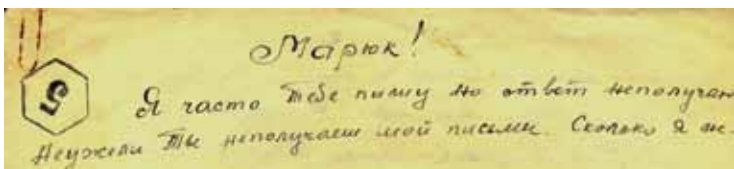 Марюк!
5
Я часто тебе пишу но ответ неполучаю
Неужели Ты неполучаеш мой письми. Сколько я не